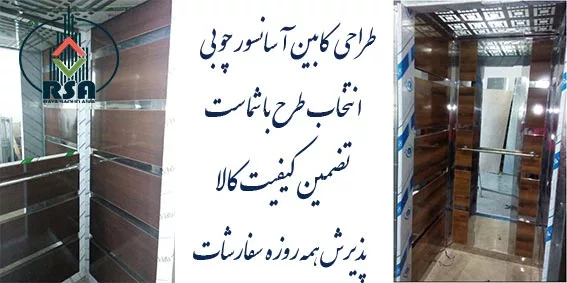 طراحی کابین آسانسور چوبی
انتخاب طرح با شماست
تضمین کیفیت کالا
پذیرش همه روزه سفارشات
RSA